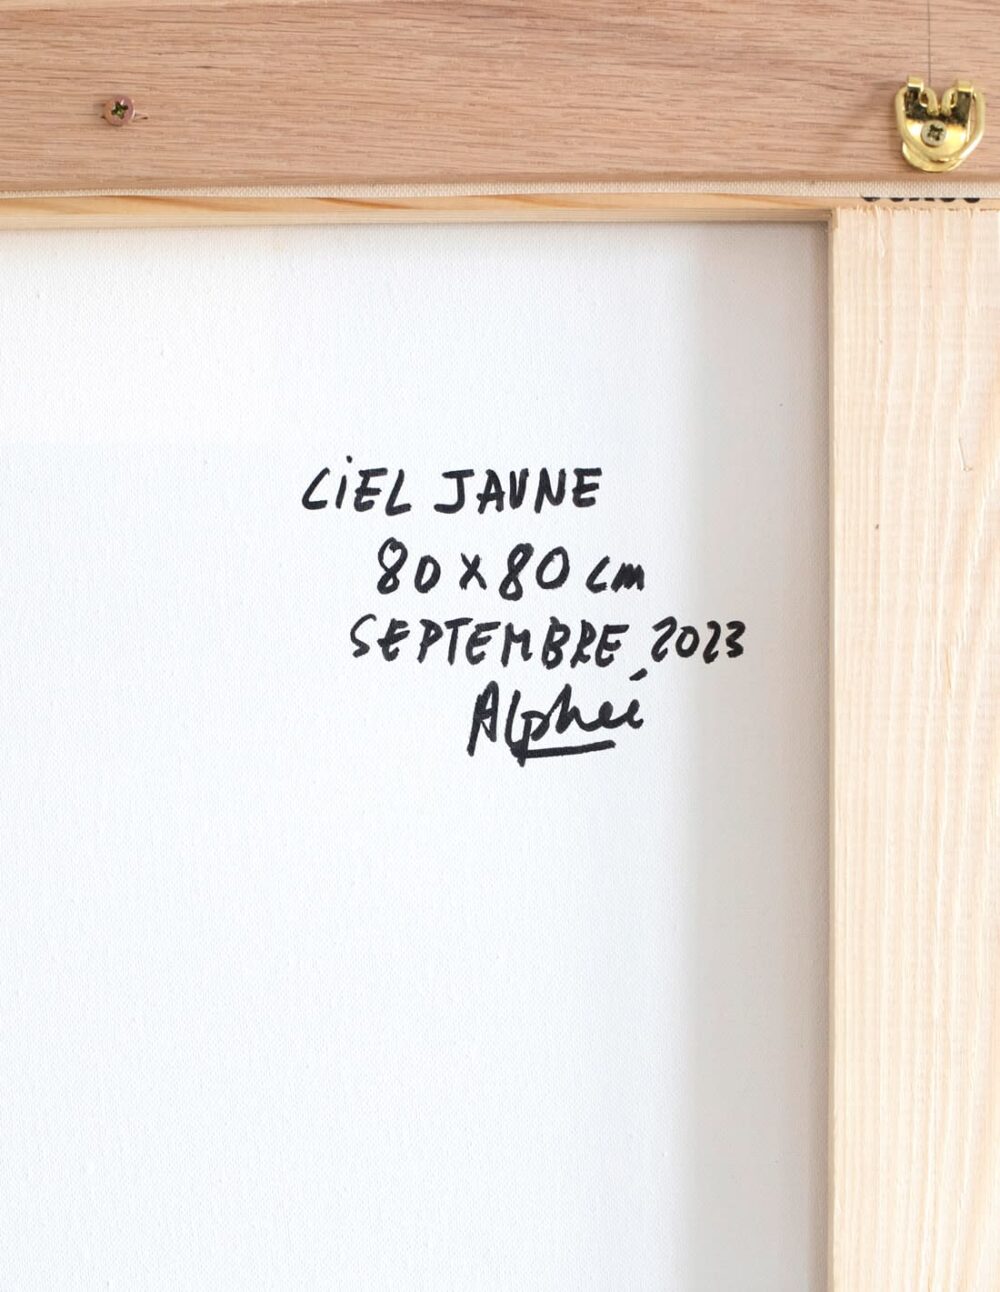 CiEL JAUNE
80 x 80 cm
SEPTEMBRE 2023
Alphée